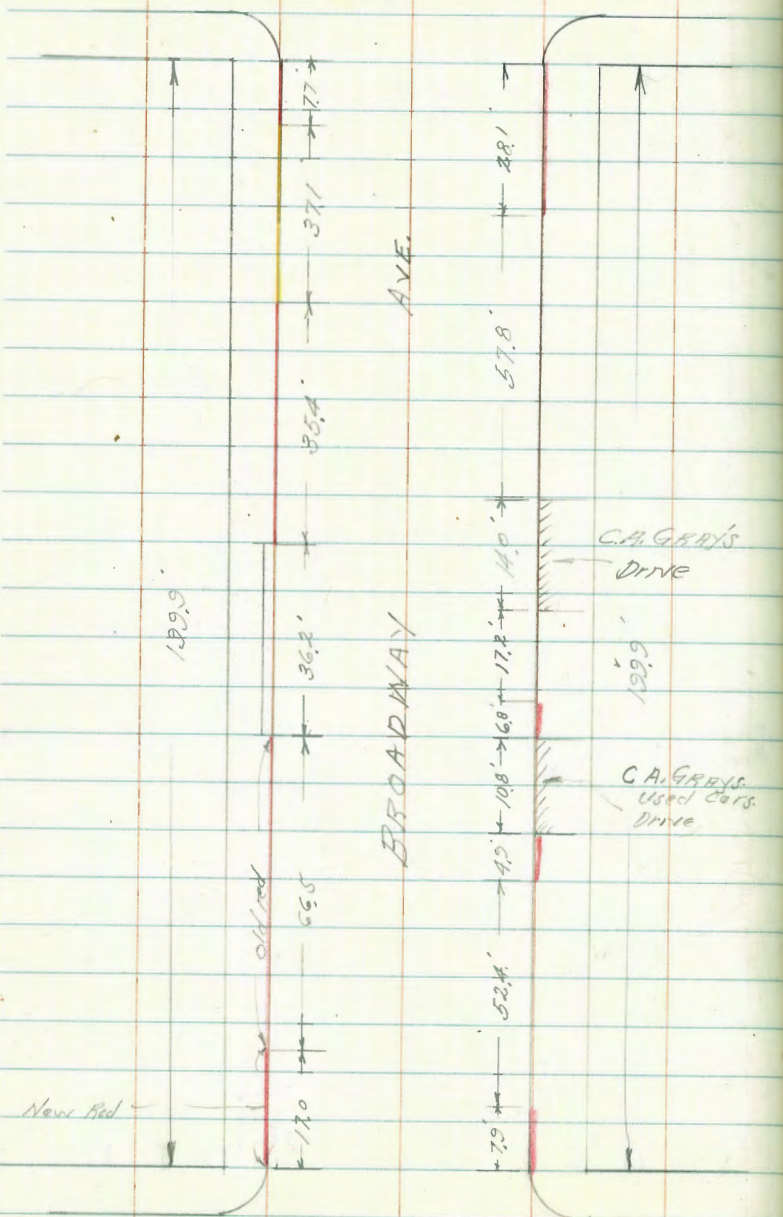 7.7
37.1
35.4'
36.2'
66.5
17.0
199.9'
old red
New Red
BROADWAY AVE.
28.1'
57.8'
14.0'
17.2'
6.8'
10.8'
4.9'
52.4'
7.9'
199.9'
C.A. GRAY'S
Drive
C.A. GRAYS.
Used Cars.
Drive